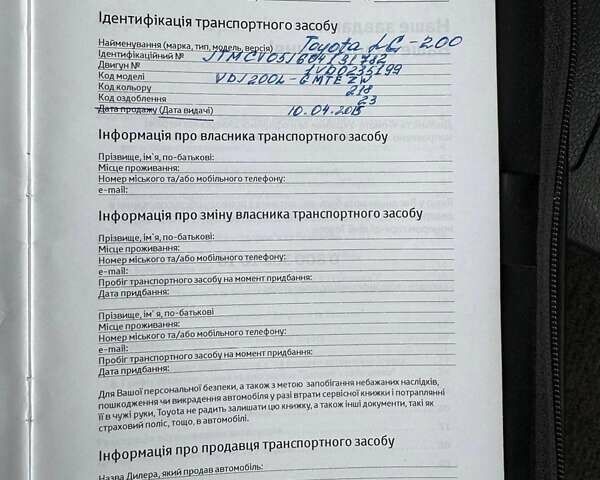 Ідентифікація транспортного засобу
Найменування (марка, тип, модель, версія) Toyota LC-200
Ідентифікаційний № JTMCV05J604131782
Двигун № 1VD0235199
Код моделі VDJ200L-GMTEZW
Код кольору 218
Код оздоблення 23
Дата продажу (Дата видачі) 10.04.2015
Інформація про власника транспортного засобу
Прізвище, ім'я, по-батькові:
Місце проживання:
Номер міського та/або мобільного телефону:
e-mail:
Інформація про зміну власника транспортного засобу
Прізвище, ім'я, по-батькові:
Місце проживання:
Номер міського та/або мобільного телефону:
e-mail:
Пробіг транспортного засобу на момент придбання:
Дата придбання:
Прізвище, ім'я, по-батькові
Місце проживання:
Номер міського та/або мобільного телефону:
e-mail:
Пробіг транспортного засобу на момент придбання:
Дата придбання:
Для Вашої персональної безпеки, а також з метою запобігання небажаних наслідків,
пошкодження чи викрадення автомобіля у разі втрати сервісної книжки і потраплянні
її в чужі руки, Toyota не радить залишати цю книжку, а також інші документи, такі як
страховий поліс, тощо, в автомобілі.
Інформація про продавця транспортного засобу
Назва Дилера, який продав автомобіль: